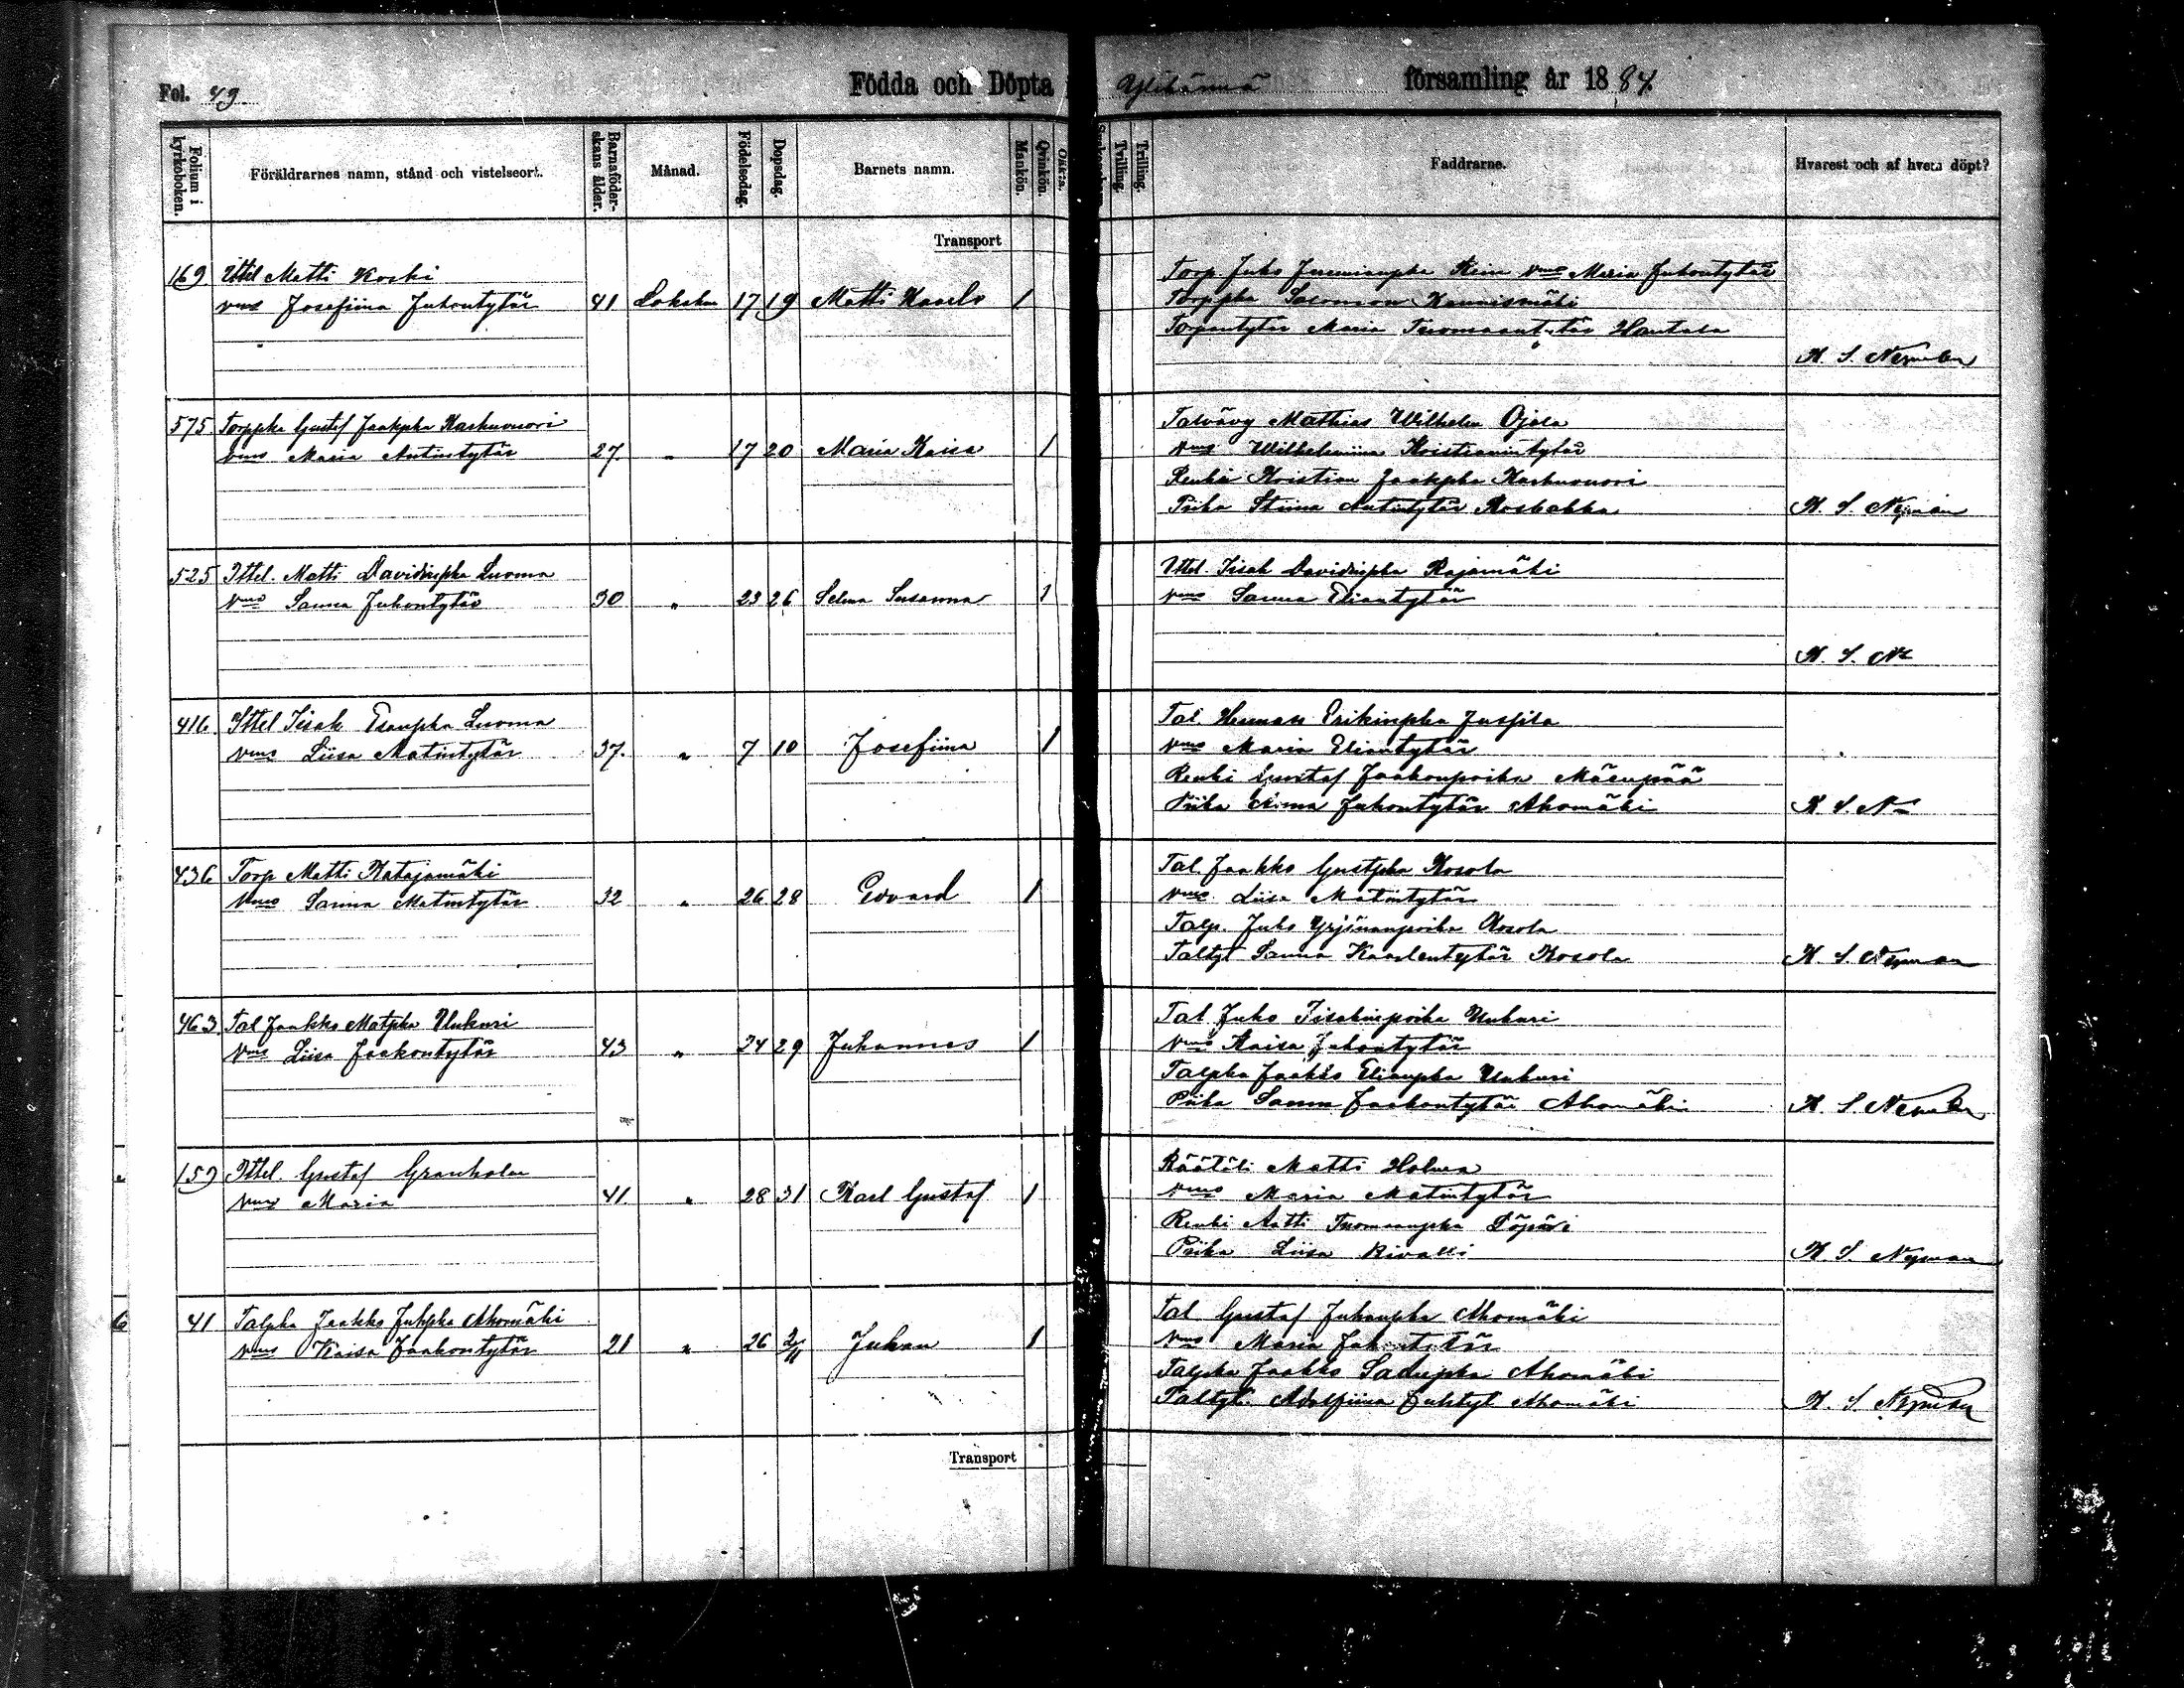 Fol. 49
Födda och Döpta
Ylihärmä församling år 1884.
Folium i kyrkoboken.
Föräldrarnes namn, stånd och vistelseort.
Barnaföderskans ålder.
Månad.
Födelsedag.
Dopsdag.
Barnets namn.
Mankön.
Qvinkön.
Trilling.
Trilling.
Faddrarne.
Hvarest och af hvem döpt?
Transport
169 Ittel Matti Koski
vmo Josefiina Juhontytär 41 Lokakuu 17 19 Matti Kaarlo 1
Torp. Juho vmo Maria Juhontytär
Torppka Salomon
Torpantytär Maria Tuomaantytär Hautala
K. S. Nyman
575. Torppka Gustaf Jaakpka Karhuvuori
vmo Maria Antintytär 27. " 17 20 Maria Kaisa 1
Talvävy Mathias Wilhelm Ojala
vmo Wilhelmiina Kristianintytär
Renki Kristian Jaakpka Karhuvuori
Piika Stiina Antintytär
K. S. Nyman
525 Ittel. Matti Davidinpka Luoma
vmo Sanna Juhontytär 30 " 23 26 Selma Susanna 1
Ittel. Iisak Davidinpka Rajamäki
vmo Sanna Eliantytär
K. S. N
416 Ittel Iisak Esaupka Luoma
vmo Liisa Matintytär 37. " 7 10 Josefiina 1
Tal. Herman Erikinpka Jussila
vmo Maria Eliantytär
Renki Gustaf Jaakonpoika Mäenpää
Piika Juhontytär Ahomäki
K. S. N
436 Torp Matti Katajamäki
vmo Sanna Matintytär 32 " 26 28 Edvard 1
Tal. Jaakko Gustpka Kosola
vmo Liisa Matintytär
Talp. Juho Yrjänänpoika Kosola
Taltyt Sanna Kaarlentytär Kosola
K. S. Nyman
463 Tal Jaakko Matpka Unkuri
vmo Liisa Jaakontytär 43 " 24 29 Juhannes 1
Tal Juho Iisakinpoika Unkuri
vmo Kaisa Juhontytär
Talpka Jaakko Elianpka Unkuri
Piika Sanna Jaakontytär Ahomäki
K. S. Nyman
159 Ittel. Gustaf Granholm
vmo Maria 41 " 28 31 Karl Gustaf 1
Räätäli Matti Holma
vmo Maria Matintytär
Renki Antti Tuomaanpka
Piika Liisa Kivalli
K. S. Nyman
41 Talpka Jaakko Juhpka Ahomäki
vmo Kaisa Jaakontytär 21 " 26 2/11 Juhan 1
Tal Gustaf Juhanpka Ahomäki
vmo Maria
Talpka Jaakko Ahomäki
Taltyt. Adolfiina Juhtyt Ahomäki
K. S. Nyman
Transport